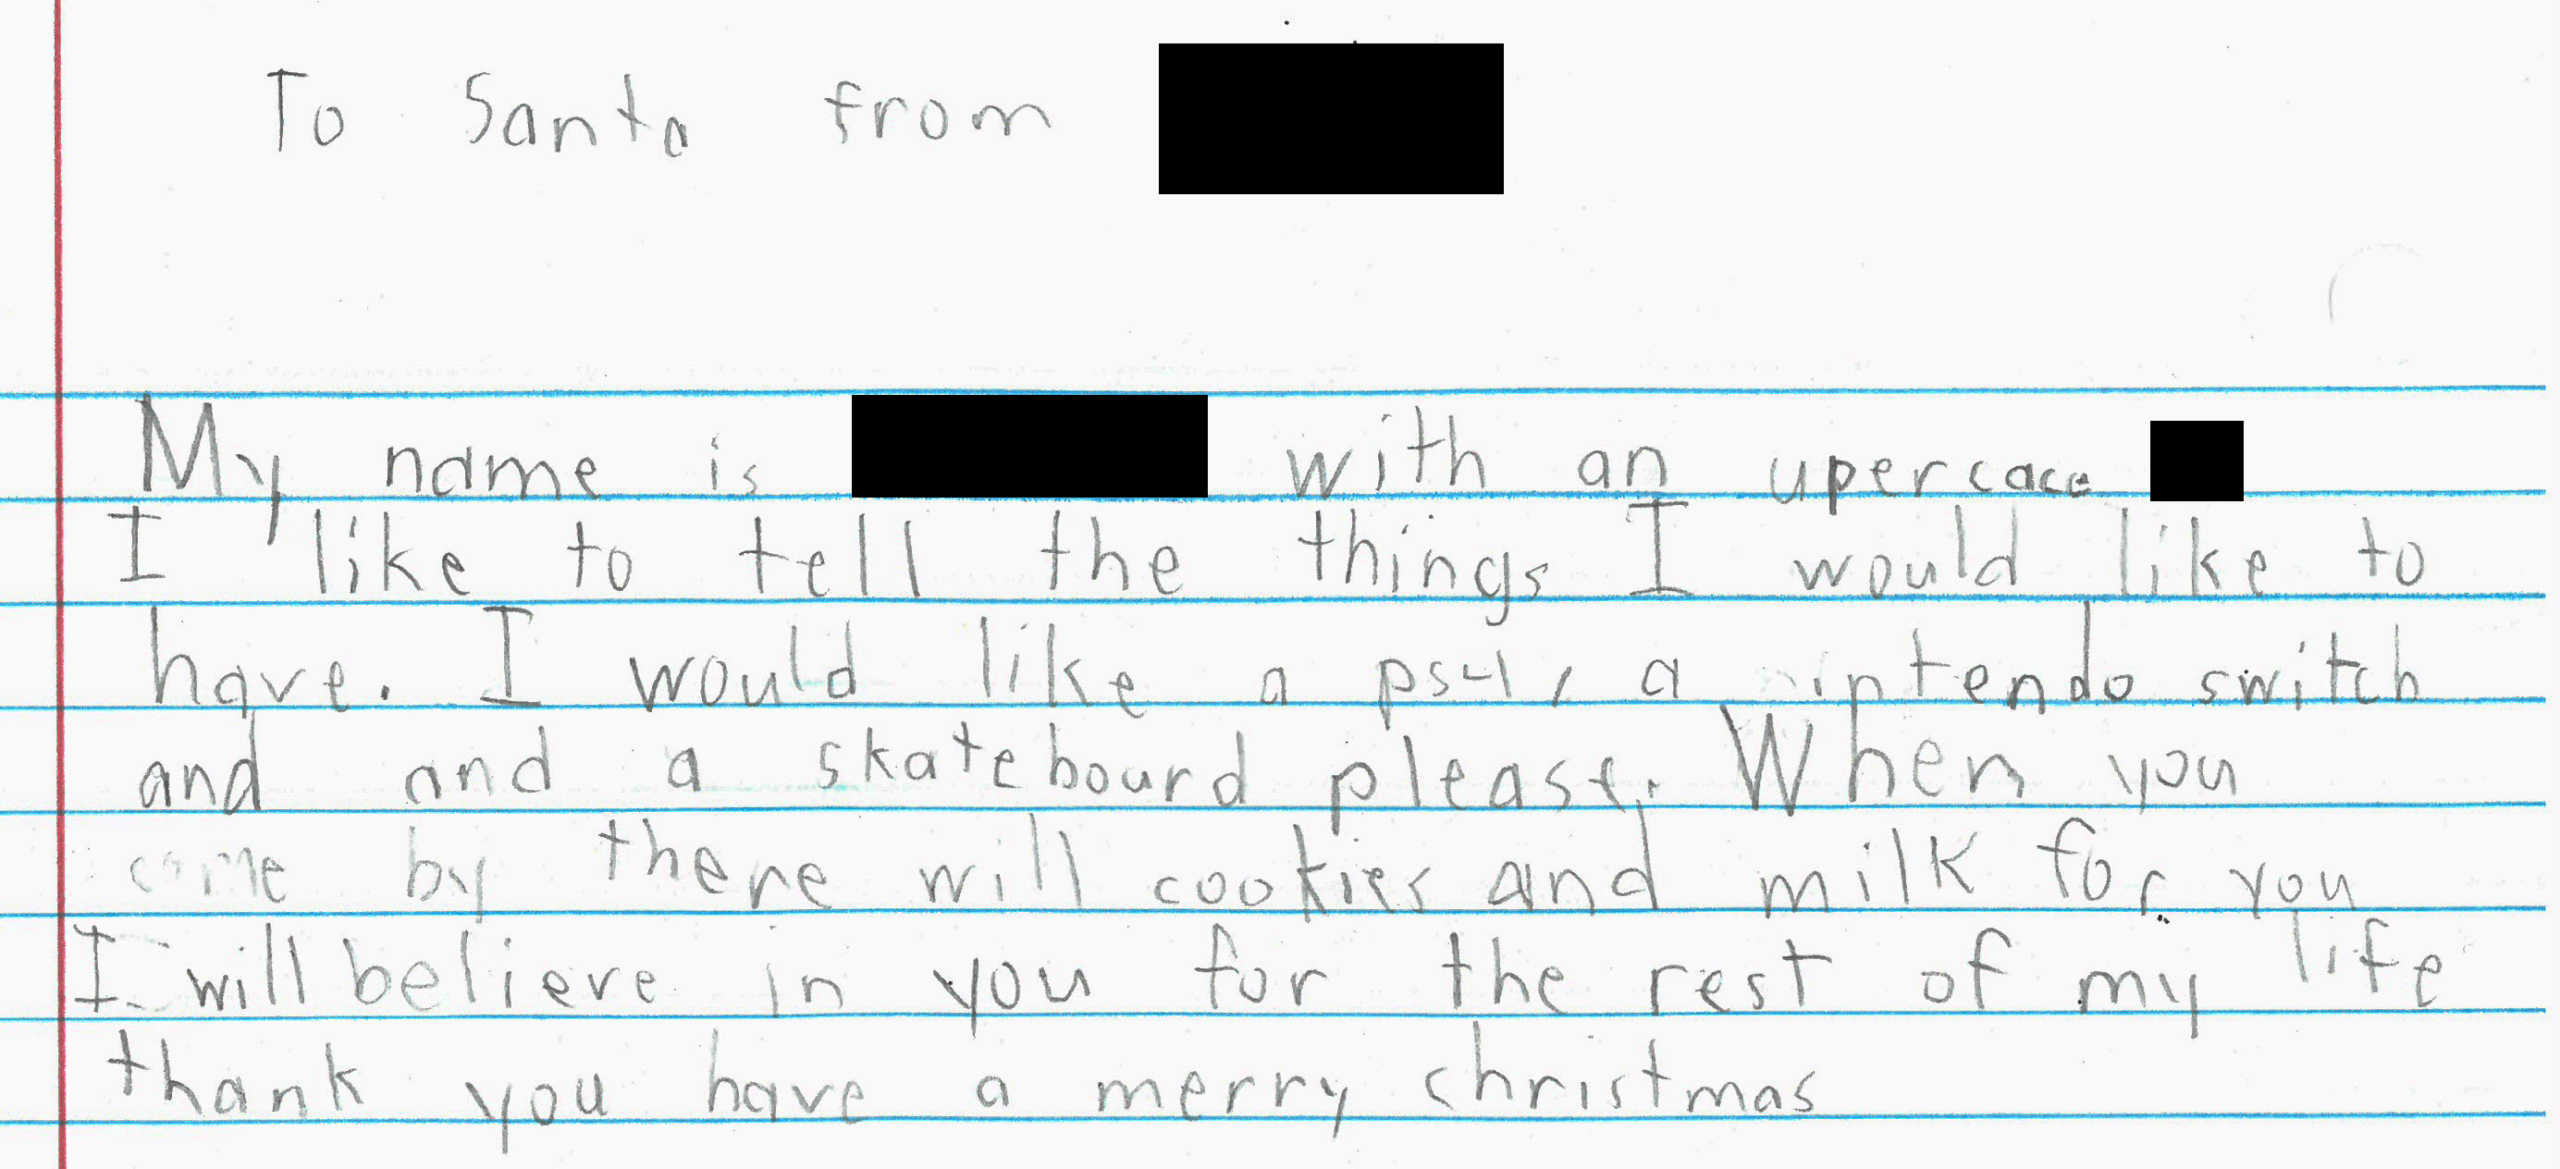 To Santa from
My name is with an upercace
I like to tell the things I would like to
have. I would like a ps4, a nintendo switch
and and a skatebourd please. When you
come by there will cookies and milk for you
I will believe in you for the rest of my life
thank you have a merry christmas